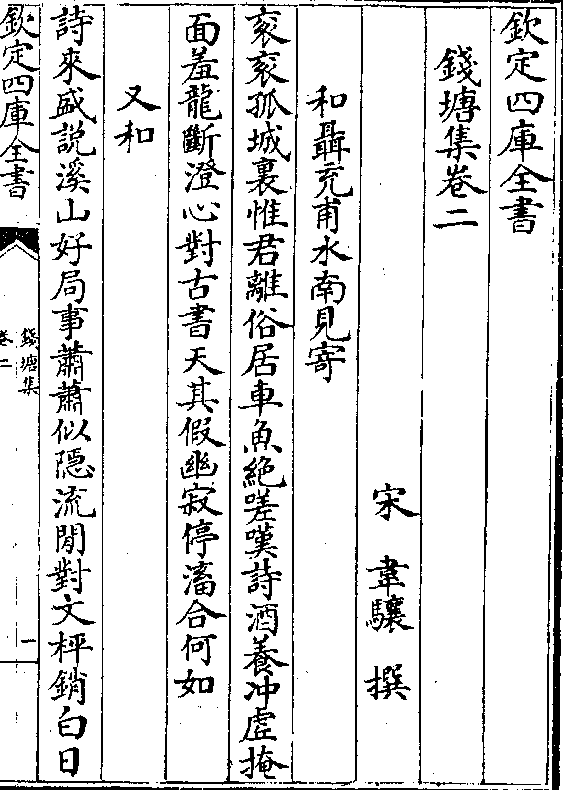 欽定四庫全書
錢塘集卷二
宋 韋驤 撰
和聶充甫水南見寄
衮衮孤城裏惟君離俗居車魚絶嗟嘆詩酒養冲虛掩
面羞龍斷澄心對古書天其假幽寂停滀合何如
又和
詩來盛説溪山好局事蕭蕭似隠流閒對文枰銷白日
欽定四庫全書
錢塘集
卷二
一